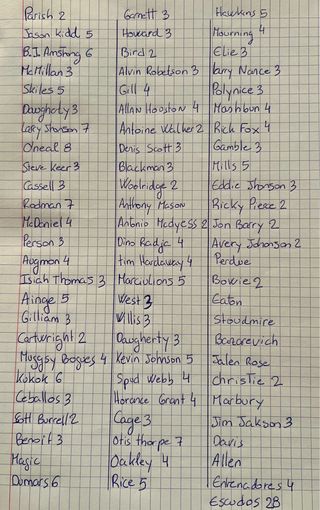 Parish 2
Jason Kidd 5
B.J. Amstrong 6
McMillan 3
Skiles 5
Daughoty 3
Lary Jhonson 7
Oneal 8
Steve Keer 3
Cassell 3
Rodman 7
McDaniel 4
Person 3
Augmon 4
Isiah Thomas 3
Ainge 5
Gilliam 3
Cartwright 2
Muggsy Bogues 4
Kukok 6
Ceballos 3
Scott Burrell 2
Benoit 3
Magic
Dumars 6
Garnett 3
Howard 3
Bird 2
Alvin Robetson 3
Gill 4
Allan Houston 4
Antoine Walker 2
Denis Scott 3
Blackman 3
Woolridge 2
Anthony Mason
Antonio Mcdyess 2
Dino Radja 4
Tim Hardaway 4
Marciulions 5
West 3
Willis 3
Daugherty 3
Kevin Johnson 5
Spud Webb 4
Horance Grant 4
Cage 3
Otis thorpe 7
Oakley 4
Rice 5
Hawkins 5
Mourning 4
Elie 3
Larry Nance 3
Polynice 3
Mashbun 4
Rick Fox 4
Gamble 3
Mills 5
Eddie Jhonson 3
Ricky Pierce 2
Jon Barry 2
Avery Johonson 2
Perdue
Bowie 2
Eaton
Stoudmire
Benarevich
Jalen Rose
Christie 2
Marbury
Jim Jakson 3
Davis
Allen
Entrenadores 4
Escudos 28